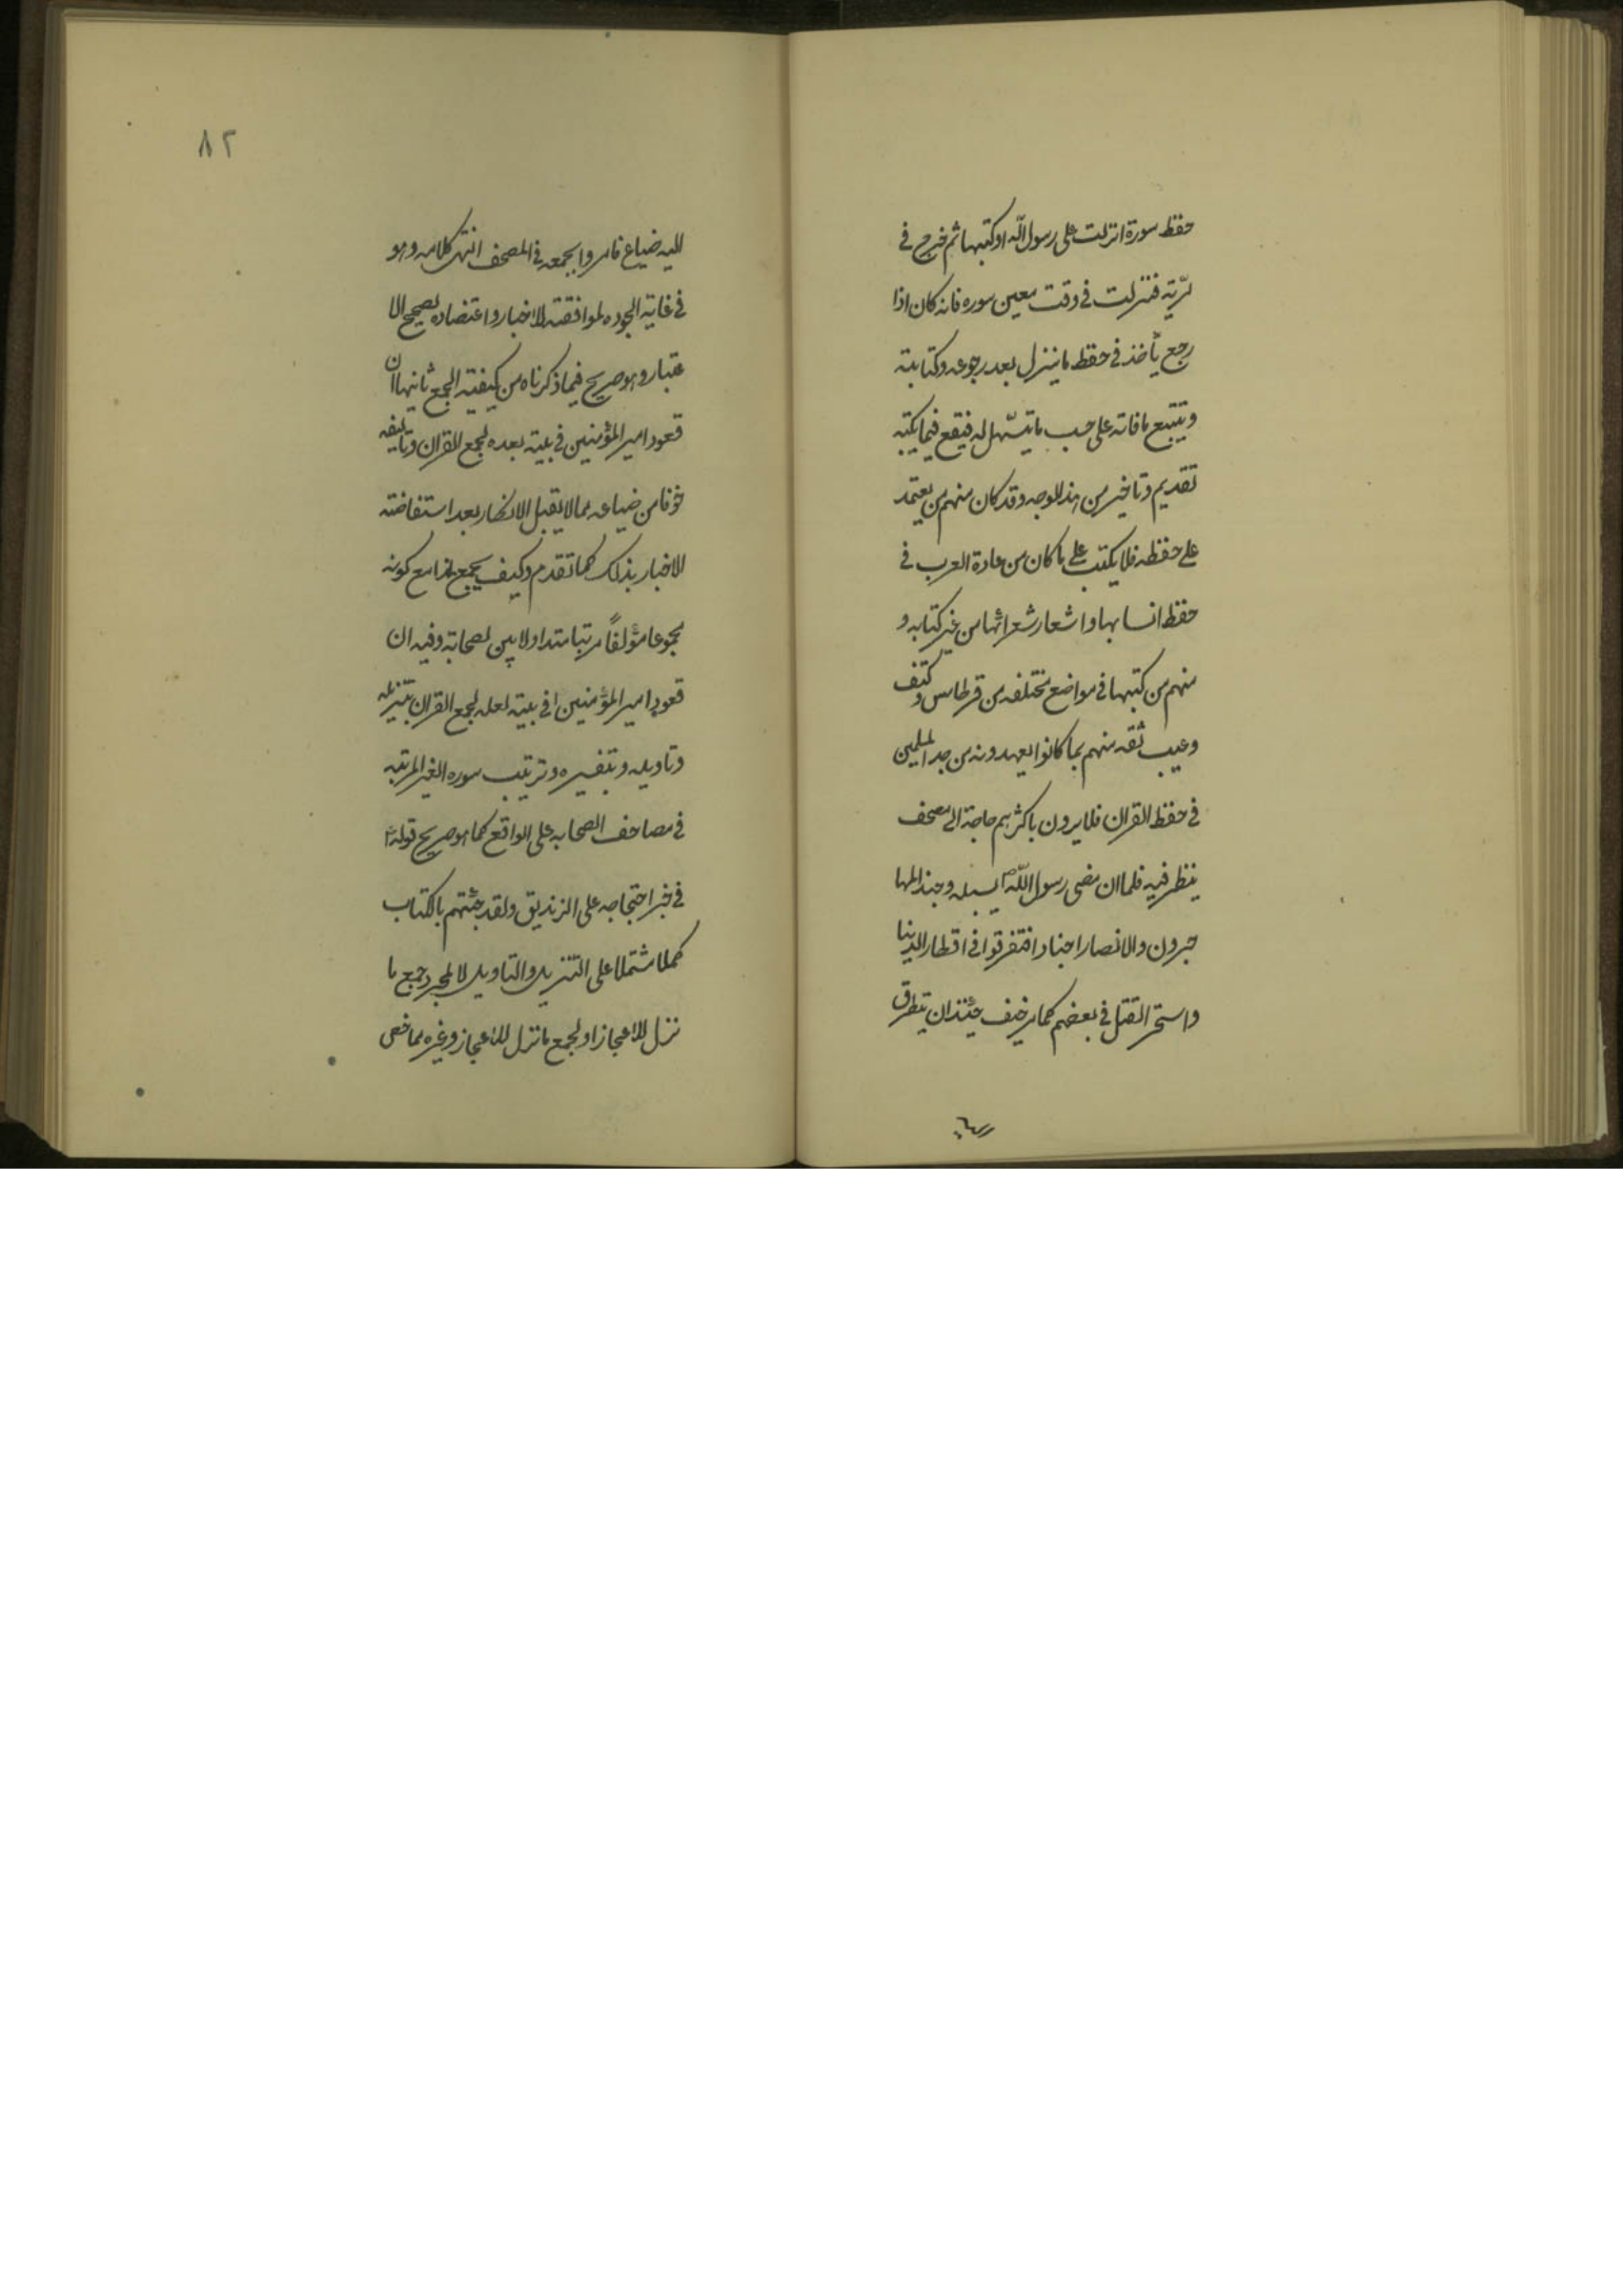 حفظ سورة انزلت على رسول الله او كتبها ثم خرج فى
سرّية فنزلت فى وقت معين سوره فانه كان اذا
رجع يأخذ فى حفظ ما ينزل بعد رجوعه وكتابته
و يتتبع ما فاته على حسب ما يتسّهل له فيقع فيما يكتبه
تقديم و تاخير من هذا الوجه وقد كان منهم من يعتمد
على حفظه فلا يكتب على ما كان من عادة العرب فى
حفظ انسابها و اشعار شعرائها من غير كتابه و
منهم من كتبها فى مواضع مختلفه من قرطاس و كتف
وعيب ثقه منهم بما كانوا يعهدونه من جد المسلمين
فى حفظ القران فلا يرون باكثرهم حاجة الى مصحف
ينظر فيه فلما ان مضى رسول اللهّ ص لسبيله وجند المها
جرون والانصار اجنادا فتفرقوا فى اقطار الدنيا
واستحر القتل فى بعضهم كما مر خيف حينئذ ان يتطرق
٨٢
اليه ضياع فامروا بجمعه فى المصحف انتهى كلامه وهو
فى غاية الجوده لموافقته الاخبار و اعتضاده بصحيح الا
عتبار وهو صريح فيما ذكرناه من كيفية الجمع ثانيها ان
قعود امير المؤمنين فى بيته بعده لجمع القران وتاليفه
خوفا من ضياعه مما لا يقبل الانكار بعد استفاضته
الاخبار بذلك كما تقدم وكيف يجمع هذا مع كونه
مجموعا مؤلفاً مرتبا متداولا بين الصحابة وفيه ان
قعود امير المؤمنين ع فى بيته لعله لجمع القران بتنزيله
وتاويله و بتفسيره و ترتيب سوره الغير المرتبه
فى مصاحف الصحابه على الواقع كما هو صريح قوله ع
فى خبر احتجاجه على الزنديق ولقد جئتهم بالكتاب
كملا مشتملا على التنزيل والتاويل لا لمجرد جمع ما
نزل للاعجاز او لجمع ما نزل للاعجاز وغيره مما خص